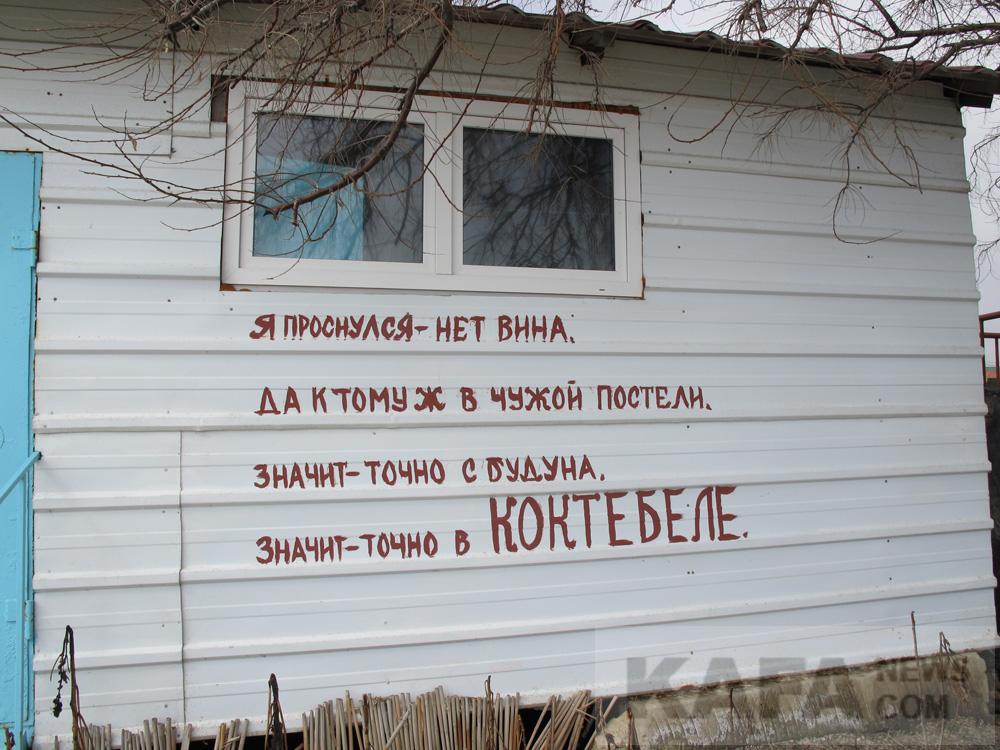 Я ПРОСНУЛСЯ-НЕТ ВИНА.
ДА К ТОМУ Ж В ЧУЖОЙ ПОСТЕЛИ.
ЗНАЧИТ-ТОЧНО С БУДУНА.
ЗНАЧИТ-ТОЧНО В КОКТЕБЕЛЕ.
КАFА NEWS
COM